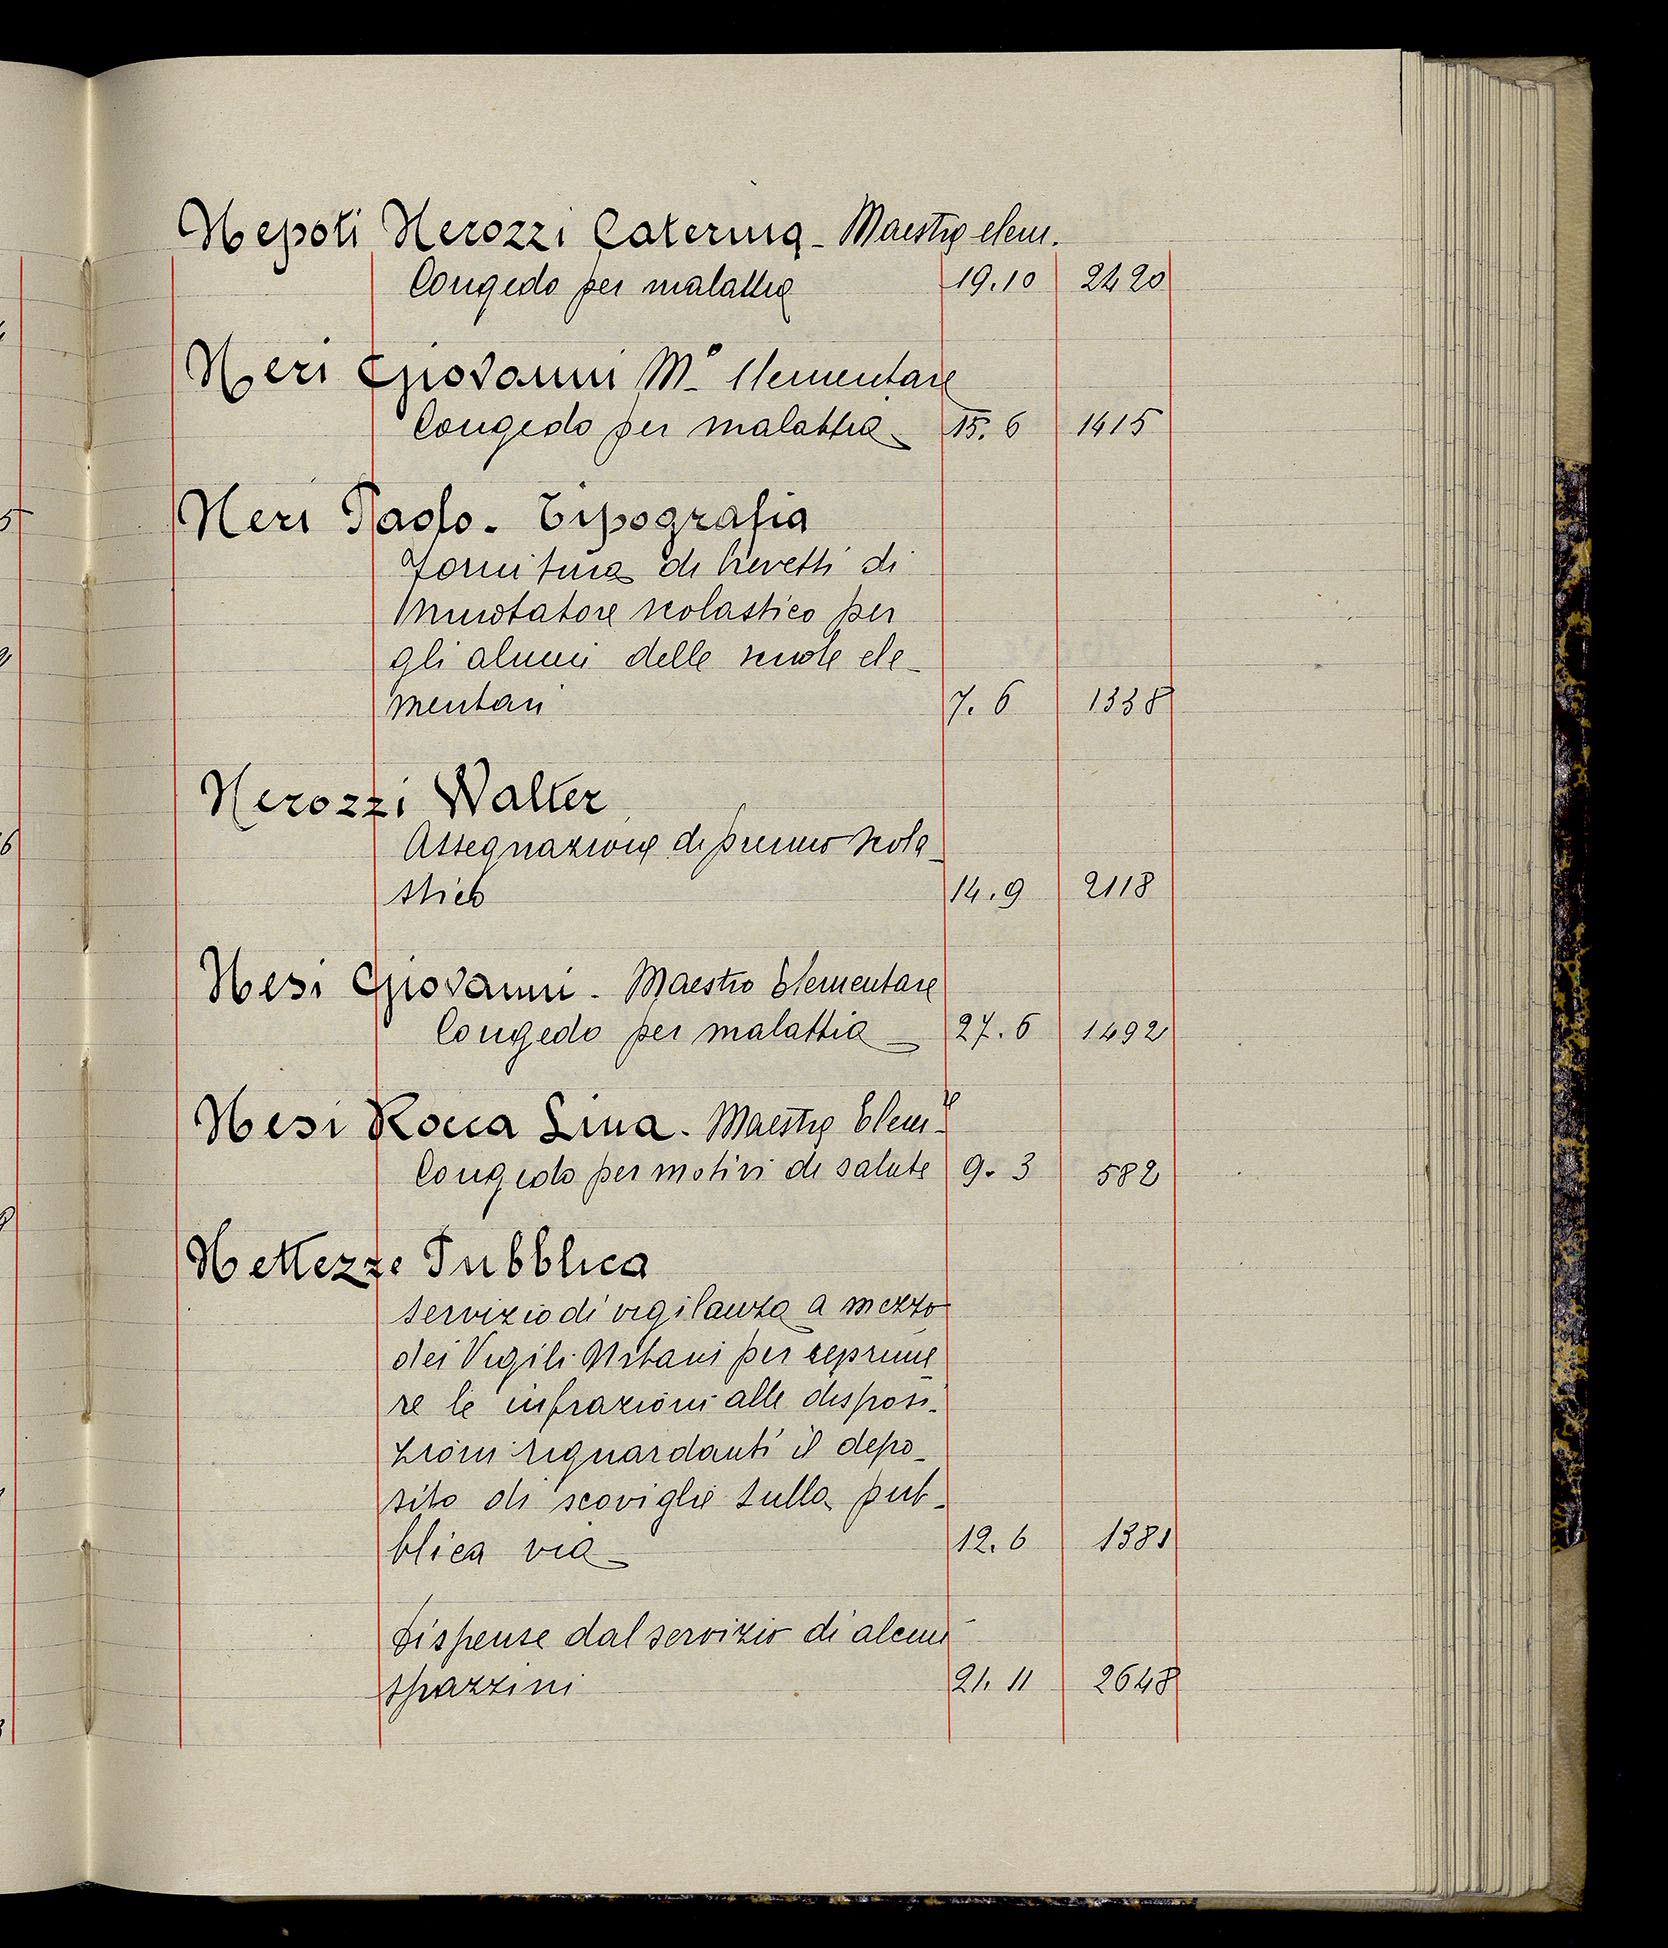 Nepoti Nerozzi Caterina - Maestra elem.
Congedo per malattia 19.10 2420
Neri Giovanni M.o Elementare
Congedo per malattia 15.6 1415
Neri Paolo - Tipografia
Fornitura di brevetti di
Annotatore scolastico per
gli alunni delle scuole ele-
mentari 7.6 1338
Nerozzi Walter
Assegnazione di premio scola-
stico 14.9 2118
Nesi Giovanni - Maestro Elementare
Congedo per malattia 27.6 1492
Nesi Rocca Lina - Maestra Elem.re
Congedo per motivi di salute 9.3 582
Nettezze Pubblica
Servizio di vigilanza a mezzo
dei Vigili Urbani per reprime
re le infrazioni alle disposi-
zioni riguardanti il depo-
sito di scoviglie sulla pub-
blica via 12.6 1381
Dispense dal servizio di alcuni
spazzini 21.11 2648